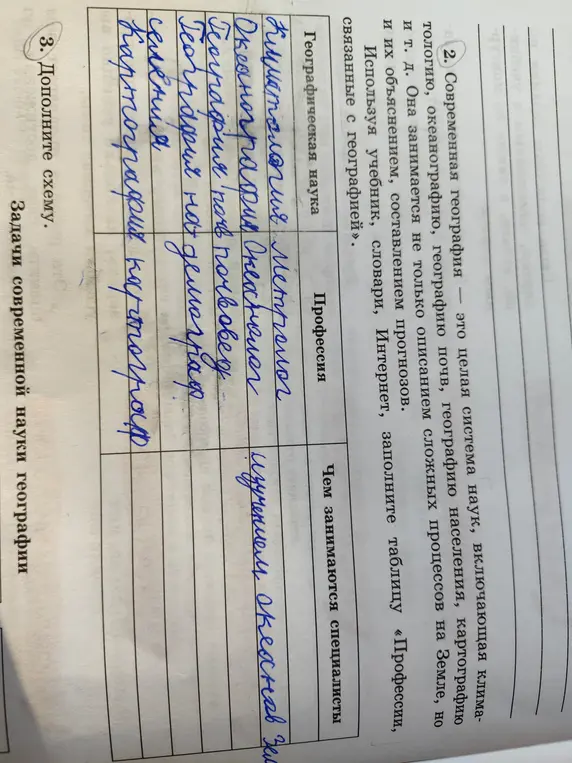 2. Современная география — это целая система наук, включающая клима-
тологию, океанографию, географию почв, географию населения, картографию
и т. д. Она занимается не только описанием сложных процессов на Земле, но
и их объяснением, составлением прогнозов.
Используя учебник, словари, Интернет, заполните таблицу «Профессии,
связанные с географией».
Географическая наука Профессия Чем занимаются специалисты
Климатология метролог
Океанография Океанолог изучением океанав Зем
География почв почвовед
География на- демограф
селения
Картография картограф
3. Дополните схему.
Задачи современной науки географии